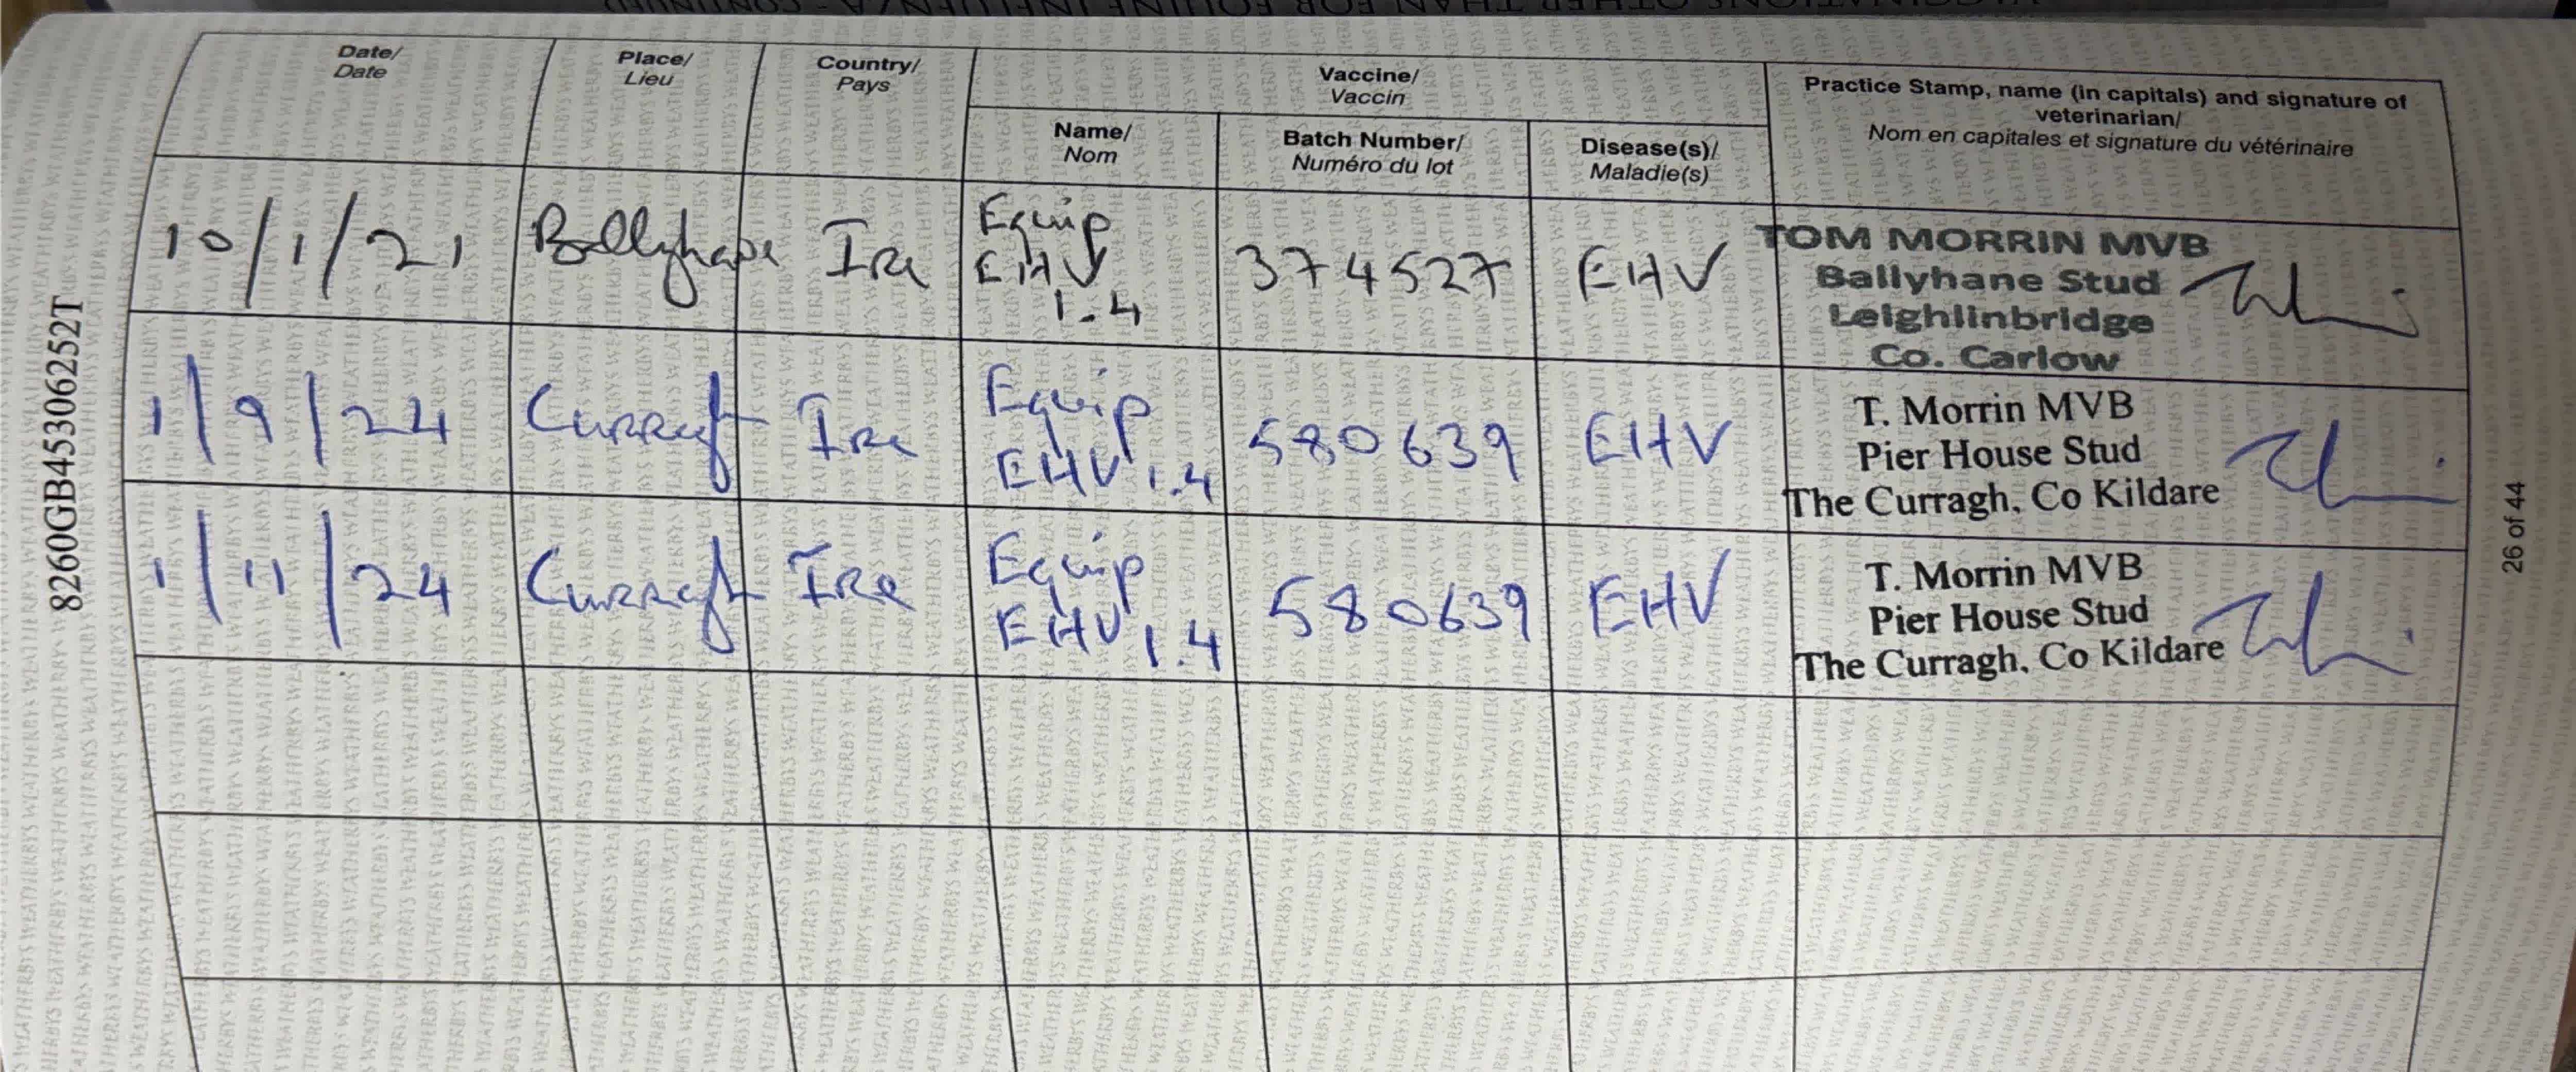 VACCINATIONS OTHER THAN FOR EQUINE INFLUENZA - CONTINUED
Date/
Date
Place/
Lieu
Country/
Pays
Vaccine/
Vaccin
Name/
Nom
Batch Number/
Numéro du lot
Disease(s)/
Maladie(s)
Practice Stamp, name (in capitals) and signature of
veterinarian/
Nom en capitales et signature du vétérinaire
10/1/21 Ballyhane Ire Equip
EHV
1.4 374527 EHV
TOM MORRIN MVB
Ballyhane Stud
Leighlinbridge
Co. Carlow
1/9/24 Curragh Ire Equip
EHV 1.4 580639 EHV
T. Morrin MVB
Pier House Stud
The Curragh, Co Kildare
1/11/24 Curragh Ire Equip
EHV 1.4 580639 EHV
T. Morrin MVB
Pier House Stud
The Curragh, Co Kildare
8260GB45306252T
26 of 44